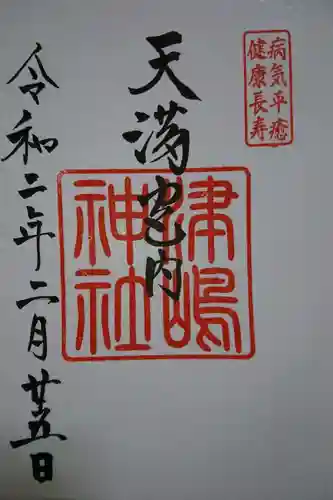 病気平癒
健康長寿
天満宮内
津嶋
神社
令和二年二月廿五日